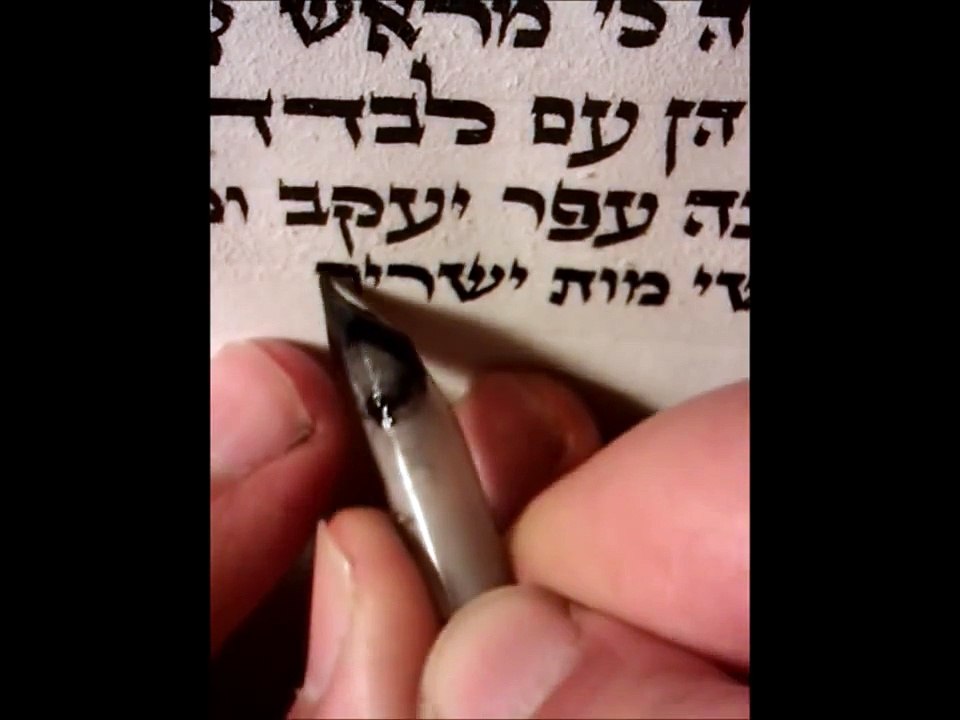 כי מראש
הן עם לבדד
עפר יעקב
מות ישרים